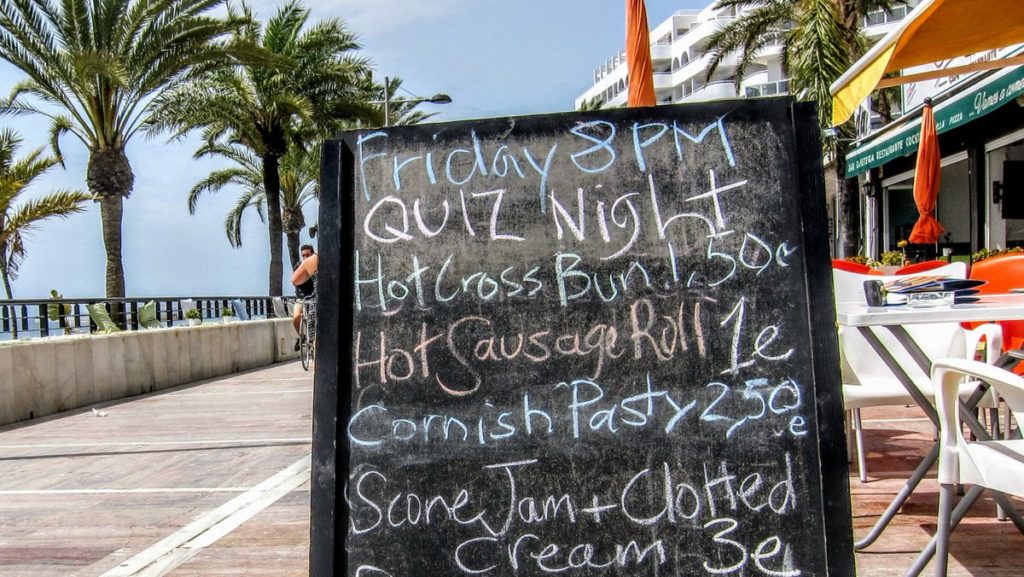 Friday 8PM
QUIZ Night
Hot Cross Bun 1,50e
Hot Sausage Roll 1e
Cornish Pasty 2,50e
Scone Jam + Clotted
Cream 3e
Vamos a
RESTAURANTE
PIZZA